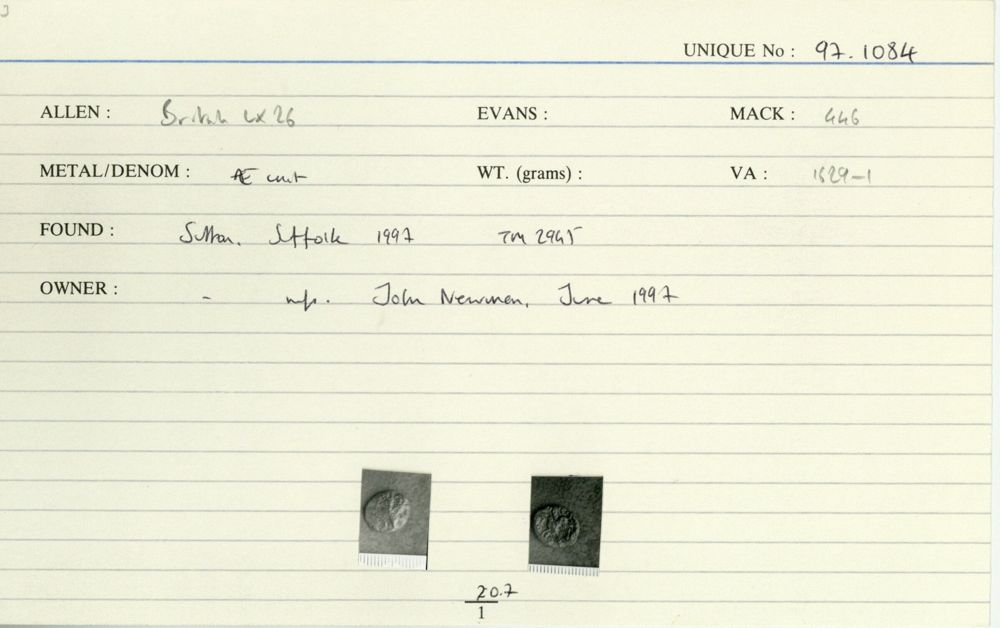 3
UNIQUE No : 97.1084
ALLEN : British LX 26 EVANS : MACK : 446
METAL/DENOM : Æ unit WT. (grams) : VA : 1629-1
FOUND : Sutton, Suffolk 1997 TM 2945
OWNER : - info. John Newman, June 1997
20.7
1